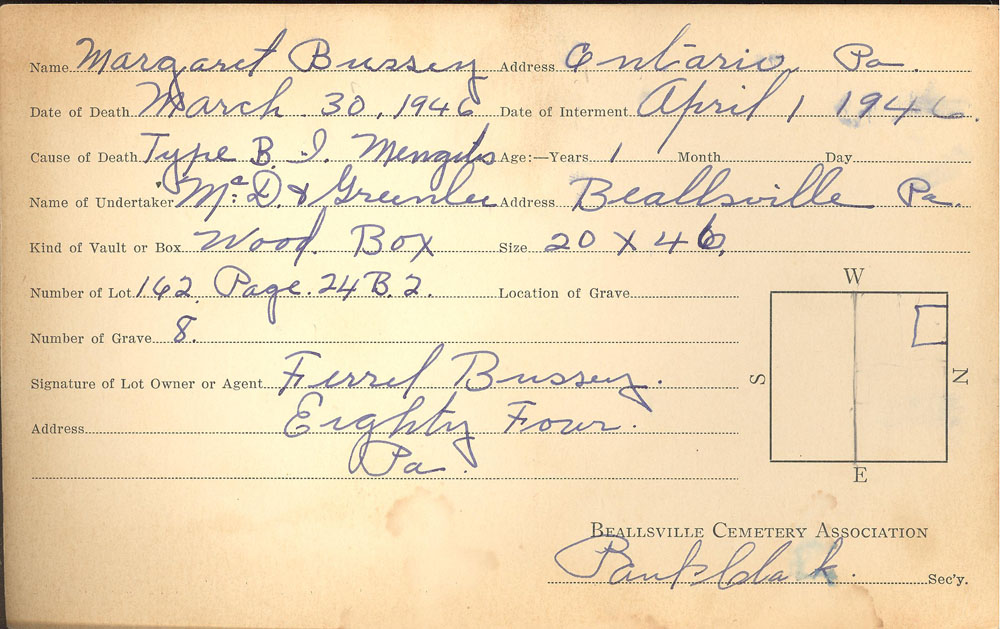 Name Margaret Bussey Address Ontario Pa.
Date of Death March 30, 1946 Date of Interment April 1 1946.
Cause of Death Type B. I. Mengits Age:—Years 1 Month Day
Name of Undertaker Mc.D. & Greenlee Address Beallsville Pa.
Kind of Vault or Box Wood. Box Size 20 X 46,
Number of Lot 162. Page. 24 B. 2. Location of Grave
W
Number of Grave 8.
S N
Signature of Lot Owner or Agent Ferrel Bussey.
Address Eighty Four.
Pa.
E
BEALLSVILLE CEMETERY ASSOCIATION
Clark. Sec'y.